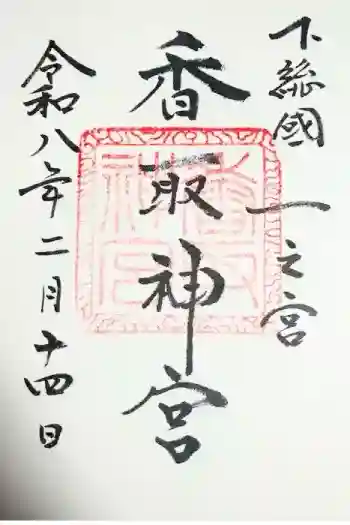 下総國一之宮
香取神宮
令和八年二月十四日